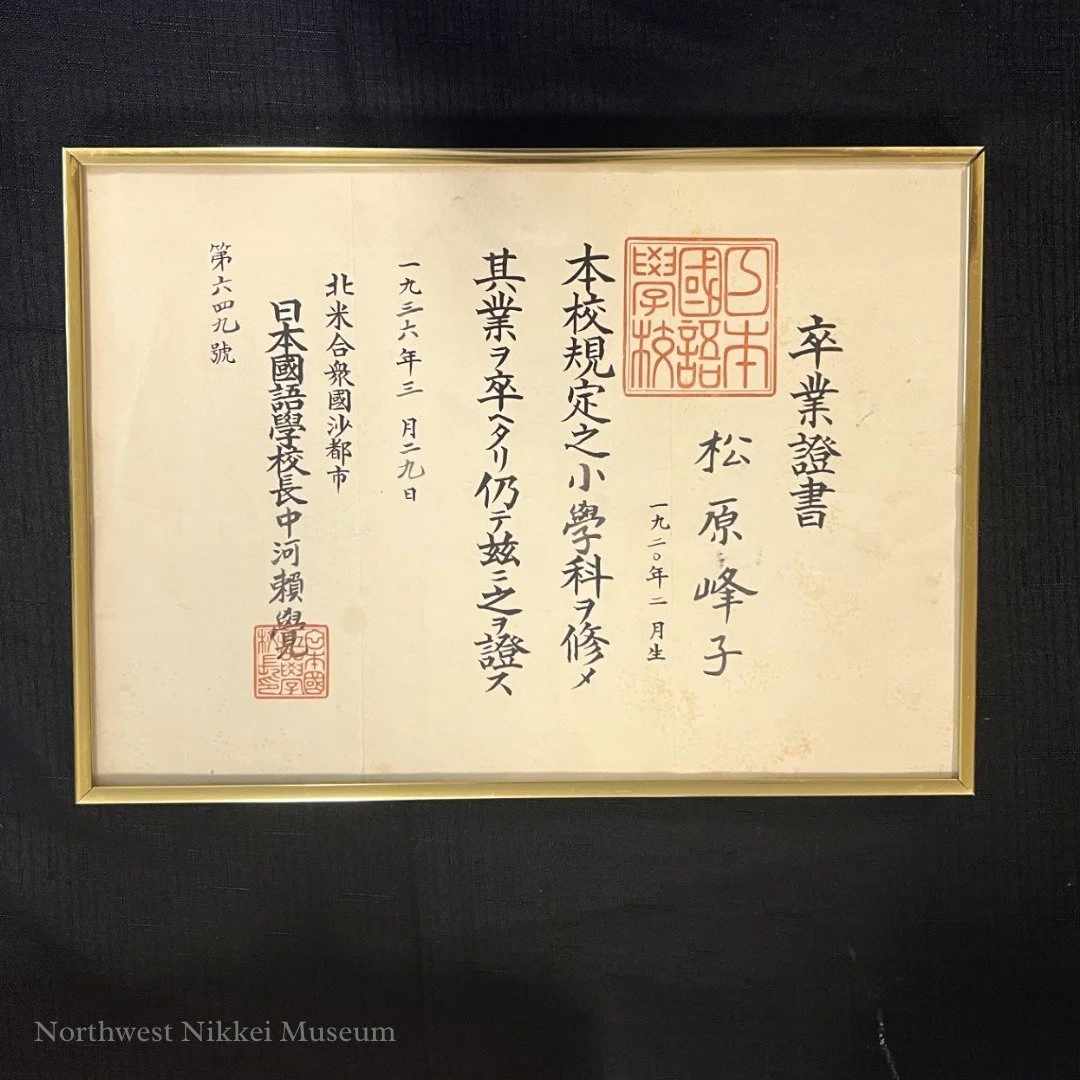 卒業證書
松原峰子
一九二〇年二月生
日本
國語
學校
本校規定之小學科ヲ修メ
其業ヲ卒ヘタリ仍テ玆ニ之ヲ證ス
一九三六年三月二九日
北米合衆國沙都市
日本國語學校長中河賴覺
第六四九號
Northwest Nikkei Museum